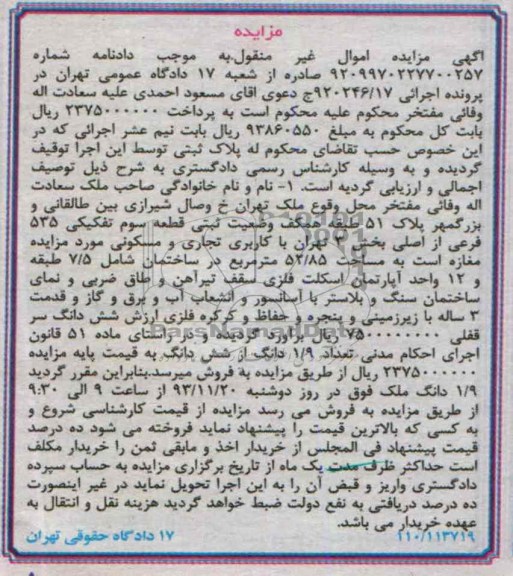 مزایده
اگهی مزایده اموال غیر منقول.به موجب دادنامه شماره
۹۲۰۹۹۷۰۲۲۷۷۰۰۲۵۷ صادره از شعبه ۱۷ دادگاه عمومی تهران در
پرونده اجرائی ۹۲۰۲۴۶/۱۷ج دعوی اقای مسعود احمدی علیه سعادت اله
وفائی مفتخر محکوم علیه محکوم است به پرداخت ۲۳۷۵۰۰۰۰۰۰ ریال
بابت کل محکوم به مبلغ ۹۳۸۶۰۵۵۰ ریال بابت نیم عشر اجرائی که در
این خصوص حسب تقاضای محکوم له پلاک ثبتی توسط این اجرا توقیف
گردیده و به وسیله کارشناس رسمی دادگستری به شرح ذیل توصیف
اجمالی و ارزیابی گردیده است. ۱- نام و نام خانوادگی صاحب ملک سعادت
اله وفائی مفتخر محل وقوع ملک تهران خ وصال شیرازی بین طالقانی و
بزرگمهر پلاک ۵۱ طبقه همکف وضعیت ثبتی قطعه سوم تفکیکی ۵۳۵
فرعی از اصلی بخش ۲ تهران با کاربری تجاری و مسکونی مورد مزایده
مغازه است به مساحت ۵۲/۸۵ مترمربع در ساختمان شامل ۷/۵ طبقه
و ۱۲ واحد آپارتمان اسکلت فلزی سقف تیرآهن و طاق ضربی و نمای
ساختمان سنگ و پلاستر با آسانسور و انشعاب آب و برق و گاز و قدمت
۳ ساله با زیرزمینی و پنجره و حفاظ و کرکره فلزی ارزش شش دانگ سر
قفلی ۷۵۰۰۰۰۰۰۰۰ ریال برآورد گردیده و در راستای ماده ۵۱ قانون
اجرای احکام مدنی تعداد ۱/۹ دانگ از شش دانگ به قیمت پایه مزایده
۲۳۷۵۰۰۰۰۰۰ ریال از طریق مزایده به فروش میرسد.بنابراین مقرر گردید
۱/۹ دانگ ملک فوق در روز دوشنبه ۹۳/۱۱/۲۰ از ساعت ۹ الی ۹:۳۰
از طریق مزایده به فروش می رسد مزایده از قیمت کارشناسی شروع و
به کسی که بالاترین قیمت را پیشنهاد نماید فروخته می شود ده درصد
قیمت پیشنهاد فی المجلس از خریدار اخذ و مابقی ثمن را خریدار مکلف
است حداکثر ظرف مدت یک ماه از تاریخ برگزاری مزایده به حساب سپرده
دادگستری واریز و قبض آن را به این اجرا تحویل نماید در غیر اینصورت
ده درصد دریافتی به نفع دولت ضبط خواهد گردید هزینه نقل و انتقال به
عهده خریدار می باشد.
۱۱۰/۱۱۳۷۱۹ ۱۷ دادگاه حقوقی تهران